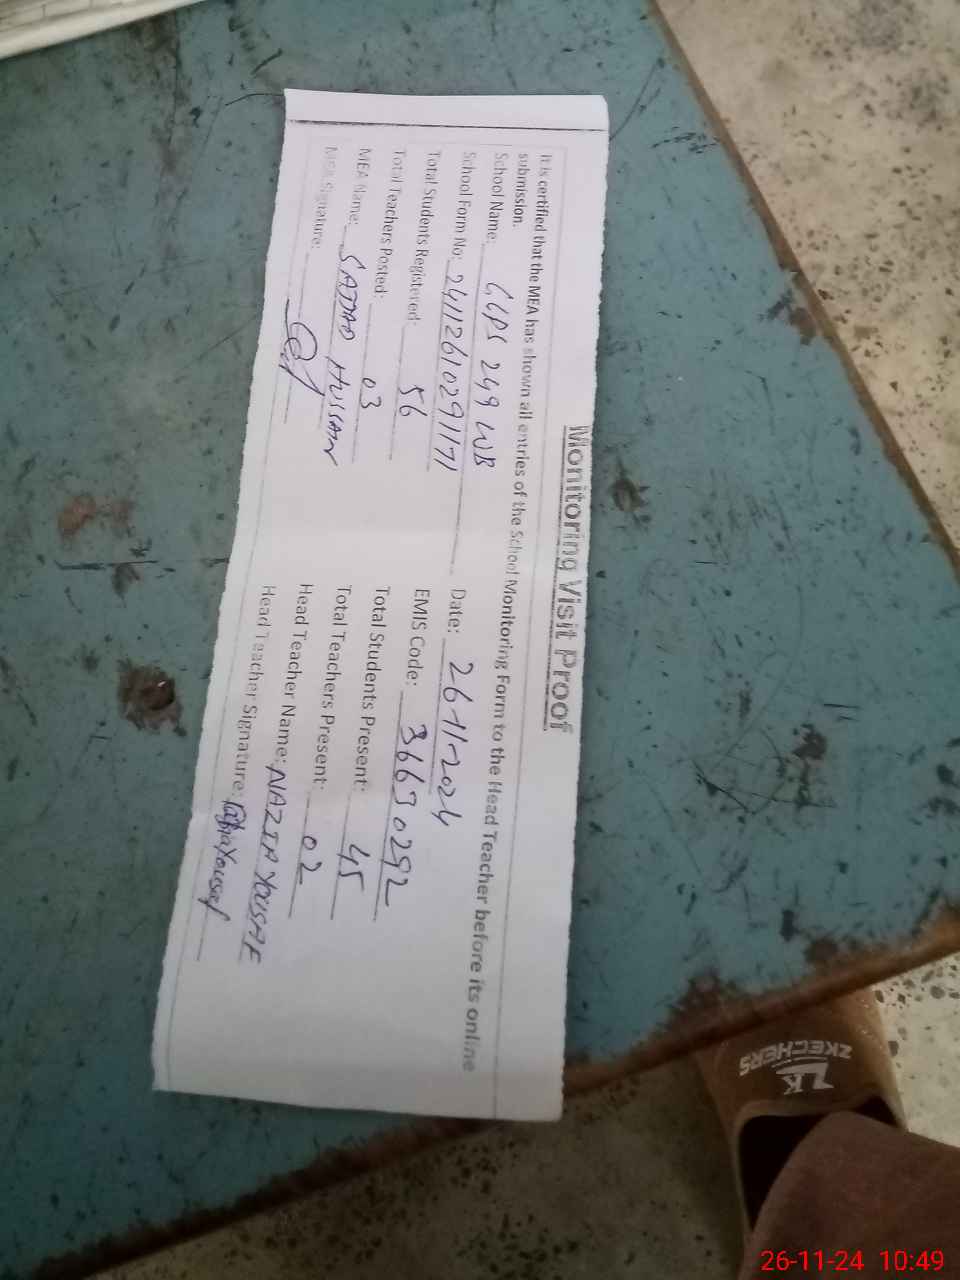 Monitoring Visit Proof
It is certified that the MEA has shown all entries of the School Monitoring Form to the Head Teacher before its online
submission.
School Name: GGPS 249 WB Date: 26-11-2024
School Form No: 24112610291171 EMIS Code: 36630292
Total Students Registered: 56 Total Students Present: 45
Total Teachers Posted: 03 Total Teachers Present: 02
MEA Name: SAJJAD HUSSAIN Head Teacher Name: NAZIA YOUSAF
MEA Signature: Head Teacher Signature:
ZK
ZKECHERS
26-11-24 10:49